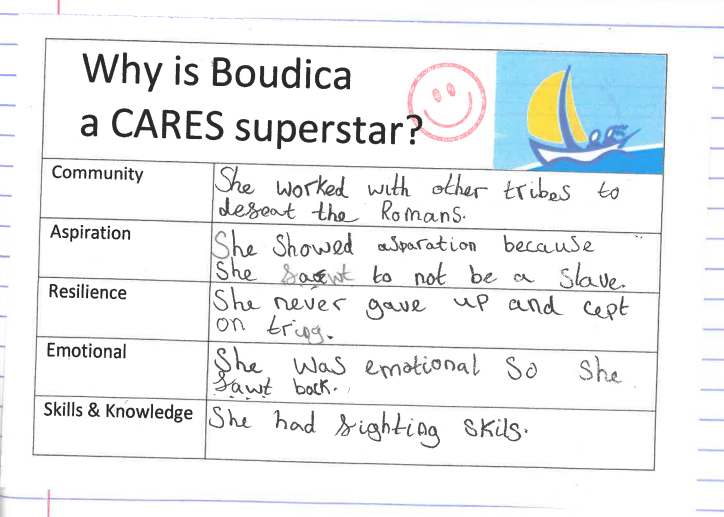 Why is Boudica
a CARES superstar?
Community
She worked with other tribes to
defeat the Romans.
Aspiration
She Showed asparation because
She fawt to not be a slave.
Resilience
She never gave up and cept
on tring.
Emotional
She was emotional so she
fawt back.
Skills & Knowledge
She had fighting skils.